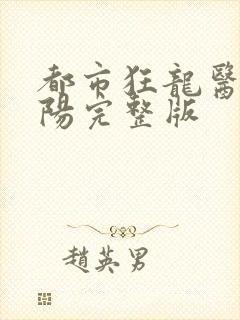 都市狂龍醫
陽完整版
趙英男